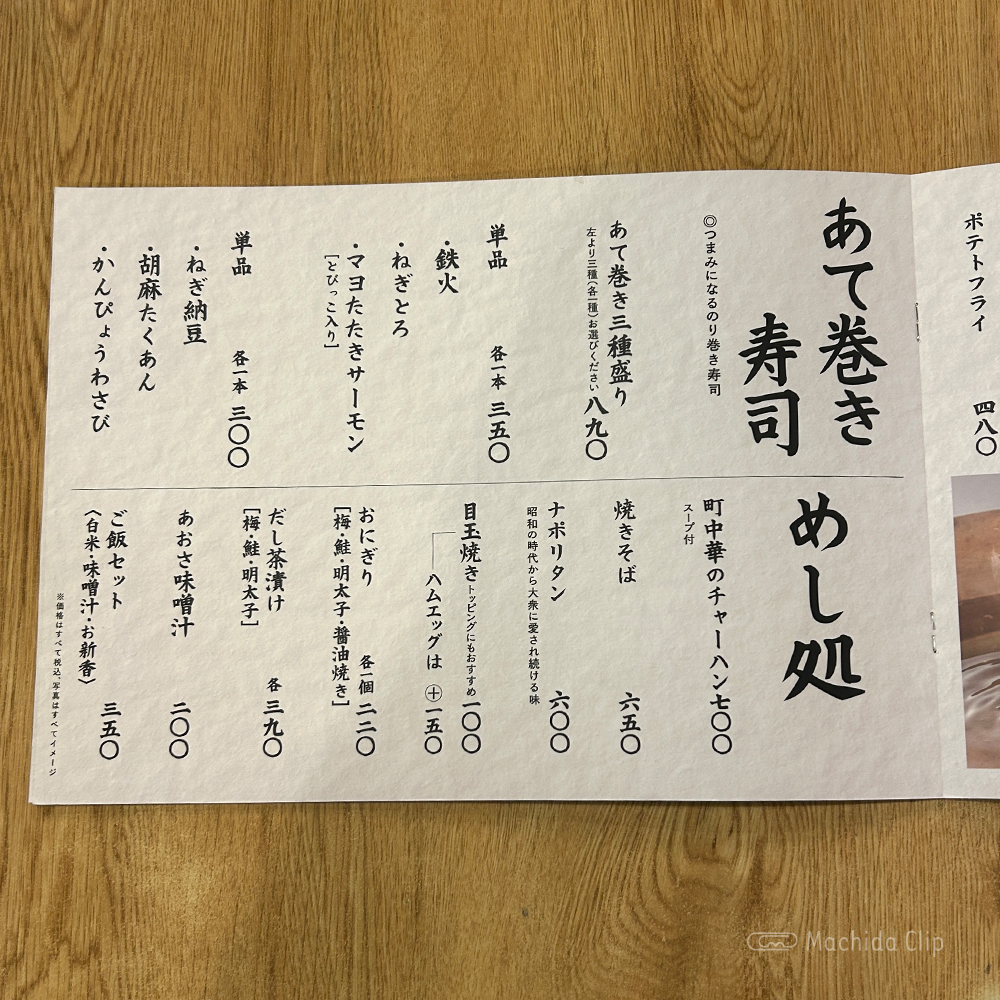 ポテトフライ 四八〇
あて巻き
寿司
◎つまみになるのり巻き寿司
あて巻き三種盛り
左より三種(各一種)お選びください 八九〇
単品 各一本 三五〇
・鉄火
・ねぎとろ
・マヨたたきサーモン
［とびっこ入り］
単品 各一本 三〇〇
・ねぎ納豆
・胡麻たくあん
・かんぴょうわさび
めし処
町中華のチャーハン 七〇〇
スープ付
焼きそば 六五〇
ナポリタン 六〇〇
昭和の時代から大衆に愛され続ける味
目玉焼き トッピングにもおすすめ 一〇〇
ハムエッグは ㊉一五〇
おにぎり 各一個 二二〇
［梅・鮭・明太子・醤油焼き］
だし茶漬け 各 三九〇
［梅・鮭・明太子］
あおさ味噌汁 二〇〇
ご飯セット 三五〇
〈白米・味噌汁・お新香〉
※価格はすべて税込、写真はすべてイメージ
Machida Clip